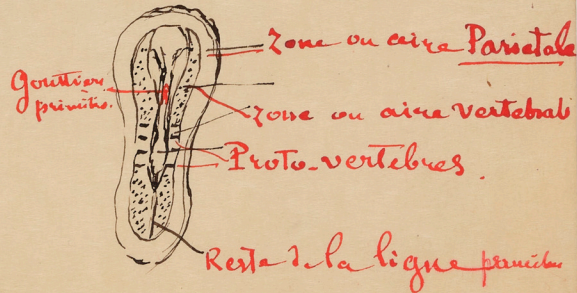 Zone ou aire Parietale
Gouttière
primitive.
Zone ou aire vertebrale
Proto-vertebres.
Reste de la ligne primitive